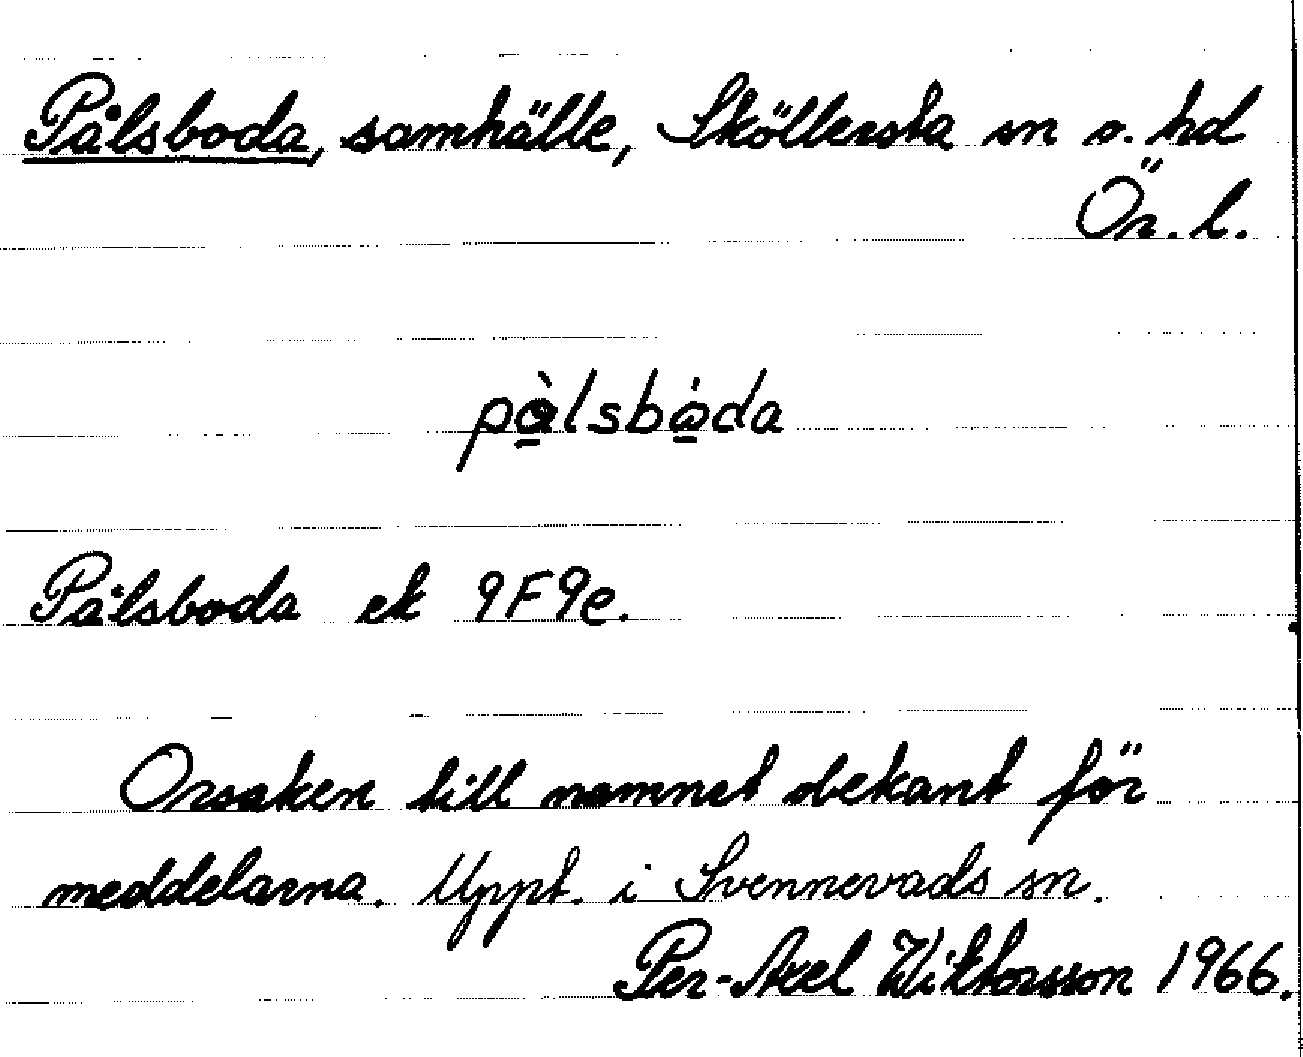 Pålsboda, samhälle, Sköllersta sn o. hd
Ör. l.
pålsboda
Pålsboda ek 9F9e.
Orsaken till namnet obekant för
meddelarna. Uppt. i Svennevads sn.
Per-Axel Wiktorsson 1966.